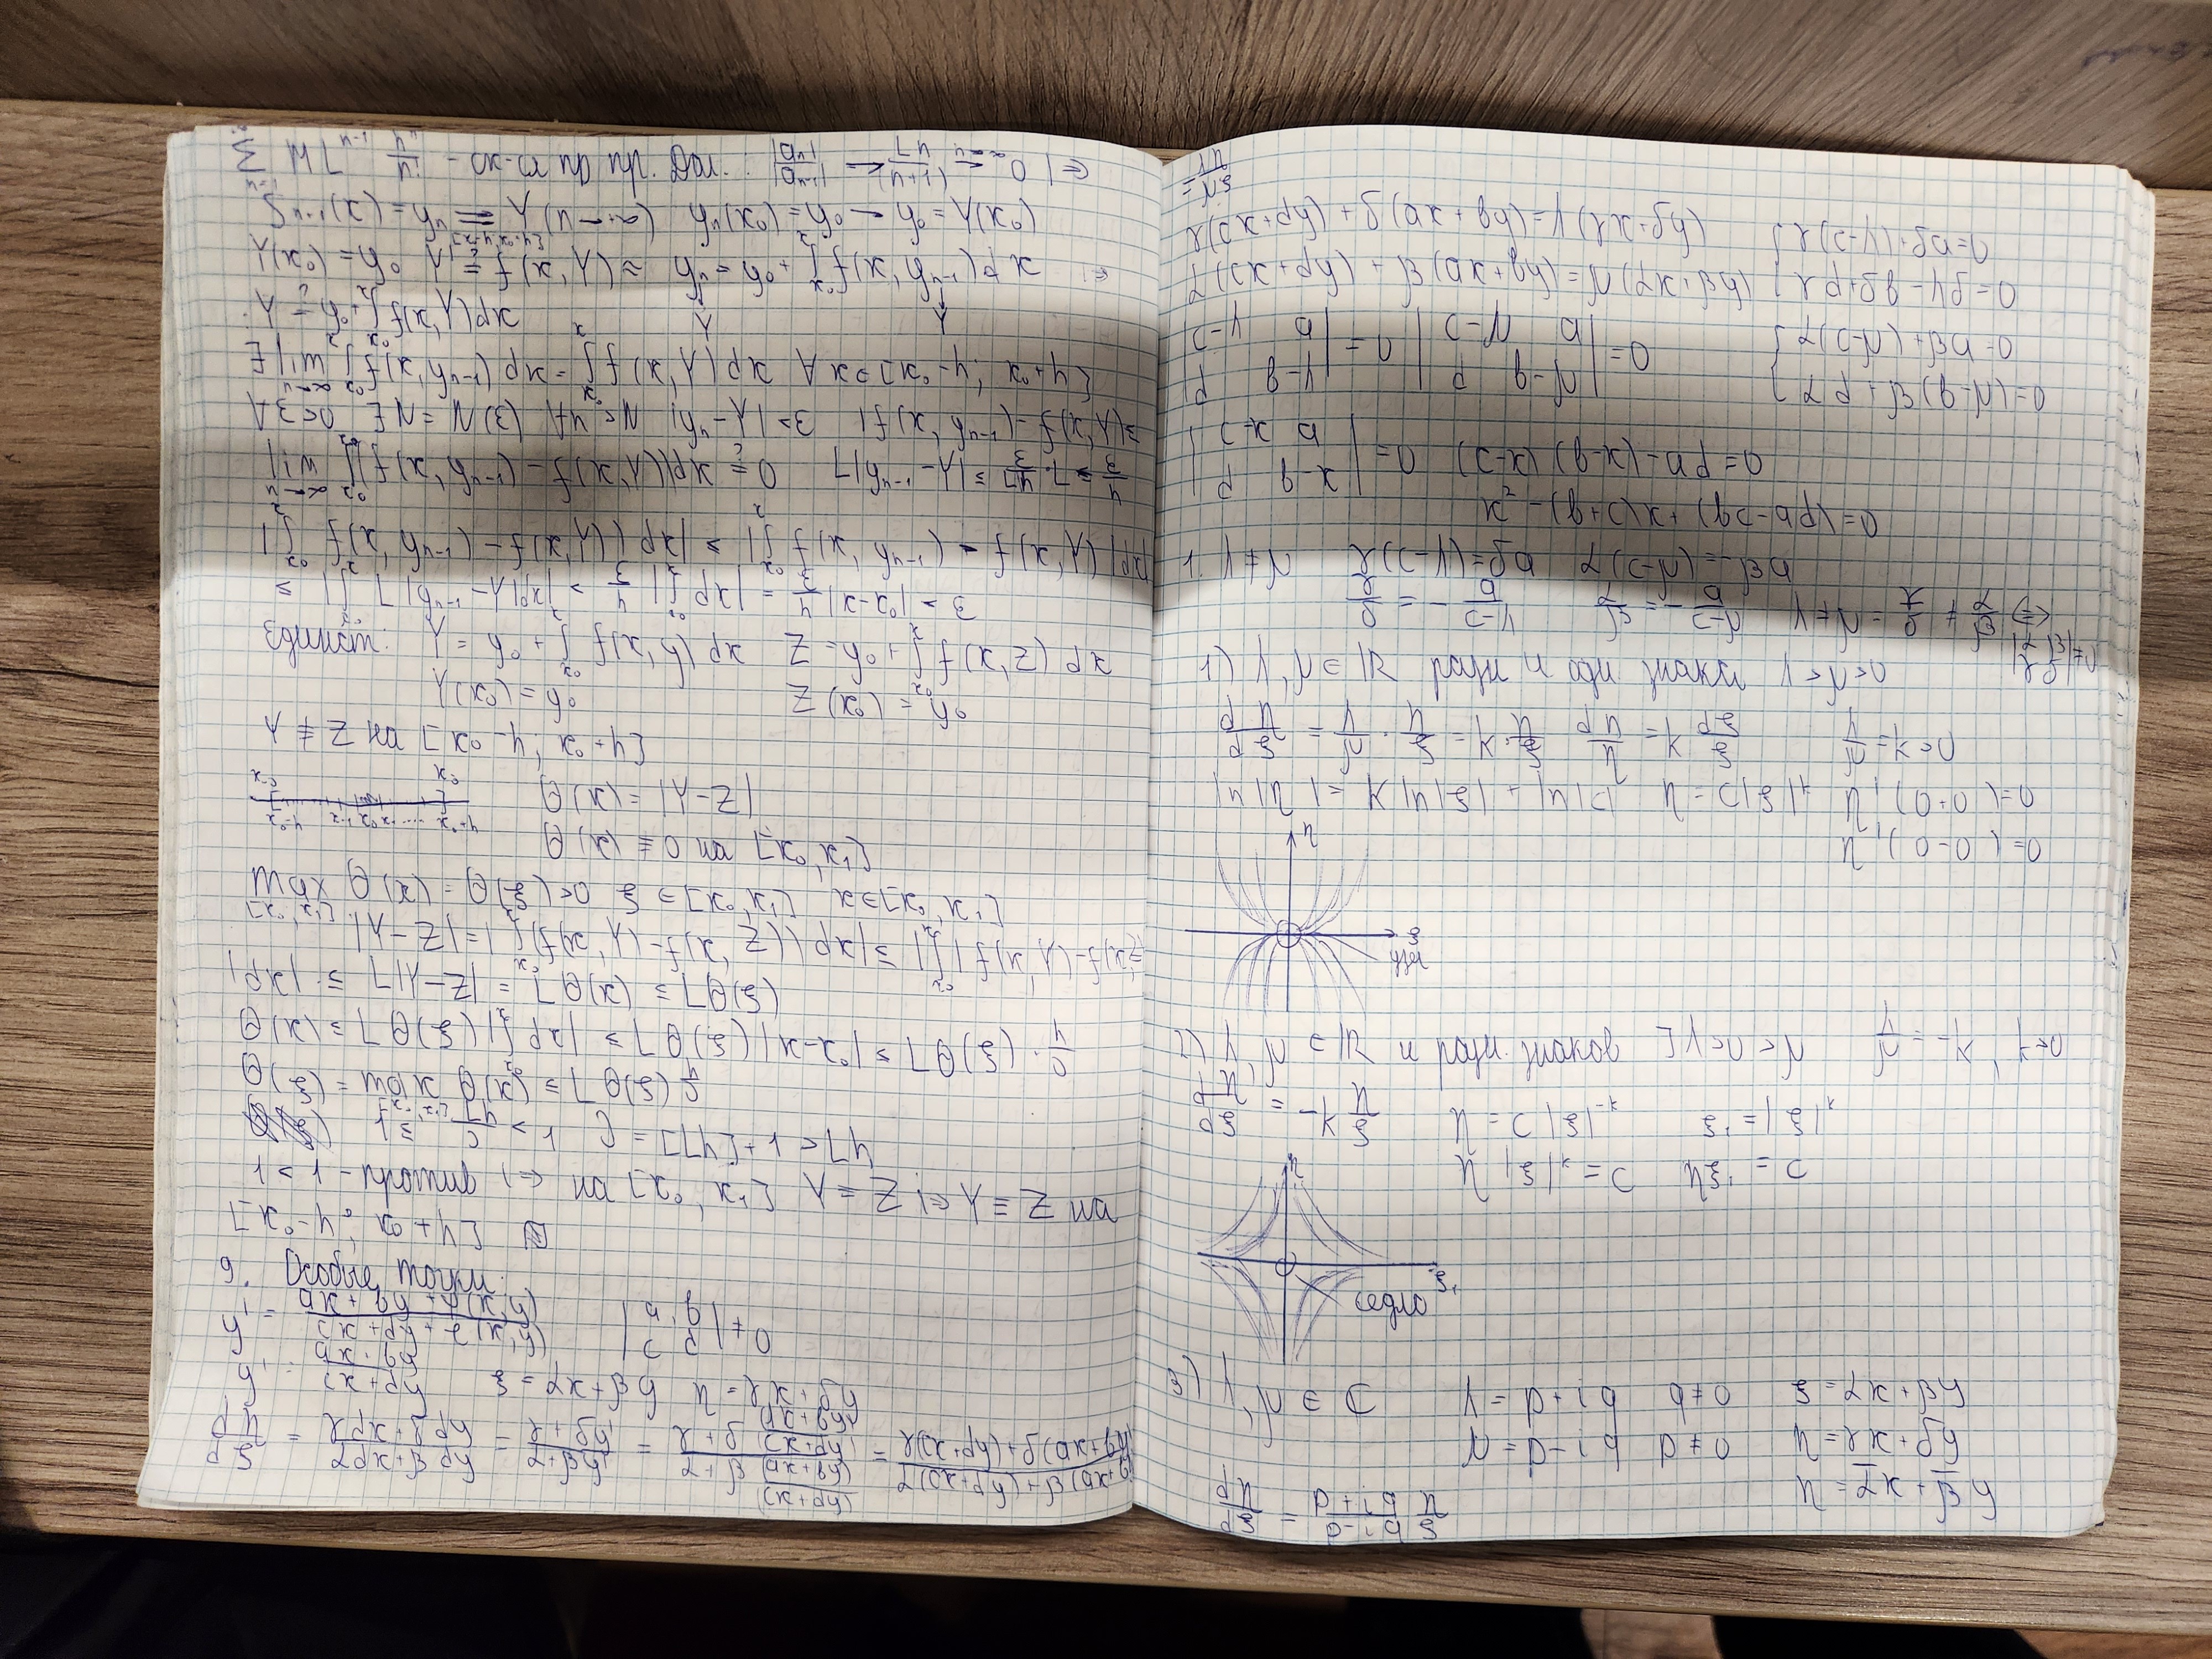 ∑ M L^{n-1} h^n/n! - сх-ся по пр. Дал.: |a_{n+1}|/|a_n| = Lh/(n+1) → 0 | ⇒
S_{n-1}(x) = y_n ⇉ Y (n→∞) y_n(x_0) = y_0 → y_0 = Y(x_0)
Y(x_0) = y_0 Y' = f(x, Y) y_n = y_0 + ∫ f(x, y_{n-1}) dx
Y = y_0 + ∫ f(x, Y) dx
∃ lim ∫ f(x, y_{n-1}) dx = ∫ f(x, Y) dx ∀ x ∈ [x_0-h; x_0+h]
∀ ε>0 ∃ N = N(ε) ∀ n > N
lim ∫ (f(x, y_{n-1}) - f(x, Y)) dx = 0
| ∫ f(x, y_{n-1}) - f(x, Y) dx | ≤ | ∫ | f(x, y_{n-1}) - f(x, Y) | dx |
≤ | ∫ L |y_{n-1} - Y| dx | < ε/h | ∫ dx | = ε/h |x-x_0| < ε
Единст: Y = y_0 + ∫ f(x, y) dx Z = y_0 + ∫ f(x, z) dx
Y(x_0) = y_0 Z(x_0) = y_0
Y ≢ Z на [x_0-h; x_0+h]
θ(x) = |Y-Z|
θ(x) ≢ 0 на [x_0, x_1]
max θ(x) = θ(ξ) > 0 ξ ∈ [x_0, x_1] x ∈ [x_0, x_1]
|Y-Z| = | ∫ (f(x, Y) - f(x, Z)) dx | ≤ | ∫ | f(x, Y) - f(x, Z)
|dx| ≤ L|Y-Z| = Lθ(x) ≤ Lθ(ξ)
θ(x) ≤ Lθ(ξ) | ∫ dx | ≤ Lθ(ξ) |x-x_0| ≤ Lθ(ξ) · h/C
θ(ξ) = max θ(x) ≤ Lθ(ξ) h/C
1 ≤ Lh/C < 1 C = [Lh] + 1 > Lh
1 < 1 - против ⇒ на [x_0, x_1] Y = Z ⇒ Y ≡ Z на
[x_0-h; x_0+h]
9. Особые точки:
y' = (ax + by + φ(x, y))/(cx + dy + ε(x, y)) |a b; c d| ≠ 0
y' = (ax + by)/(cx + dy) ξ = αx + βy η = γx + δy
dη/dξ = (γdx + δdy)/(αdx + βdy) = (γ + δy')/(α + βy') = (γ + δ (ax+by)/(cx+dy))/(α + β (ax+by)/(cx+dy)) = (γ(cx+dy) + δ(ax+by))/(α(cx+dy) + β(ax+b
= λη/μξ
γ(cx+dy) + δ(ax+by) = λ(γx+δy) {γ(c-λ) + δa = 0
α(cx+dy) + β(ax+by) = μ(αx+βy) {γd + δb - λδ = 0
|c-λ a; d b-λ| = 0 |c-μ a; d b-μ| = 0 {α(c-μ) + βa = 0
{αd + β(b-μ) = 0
|c-x a; d b-x| = 0 (c-x)(b-x) - ad = 0
x² - (b+c)x + (bc-ad) = 0
1. λ≠μ γ(c-λ) = -δa α(c-μ) = -βa
γ/δ = -a/(c-λ) α/β = -a/(c-μ) λ≠μ ⇒ γ/δ ≠ α/β ⇔
|α β; γ δ| ≠ 0
1) λ, μ ∈ ℝ разн и одн знака λ > μ > 0
dη/dξ = λ/μ · η/ξ = k · η/ξ dη/η = k dξ/ξ λ/μ = k > 0
ln|η| = k ln|ξ| + ln|C| η = C|ξ|^k η'(0+0) = 0
η'(0-0) = 0
η
ξ
узел
2) λ, μ ∈ ℝ и разн. знаков ] λ > 0 > μ λ/μ = -k, k>0
dη/dξ = -k η/ξ η = C|ξ|^{-k} ξ_1 = |ξ|^k
η|ξ|^k = C ηξ_1 = C
η
ξ_1
седло
3) λ, μ ∈ ℂ λ = p + iq q≠0 ξ = αx + βy
μ = p - iq p≠0 η = γx + δy
dη/dξ = (p+iq)/(p-iq) η/ξ η = ᾱx + β̄y